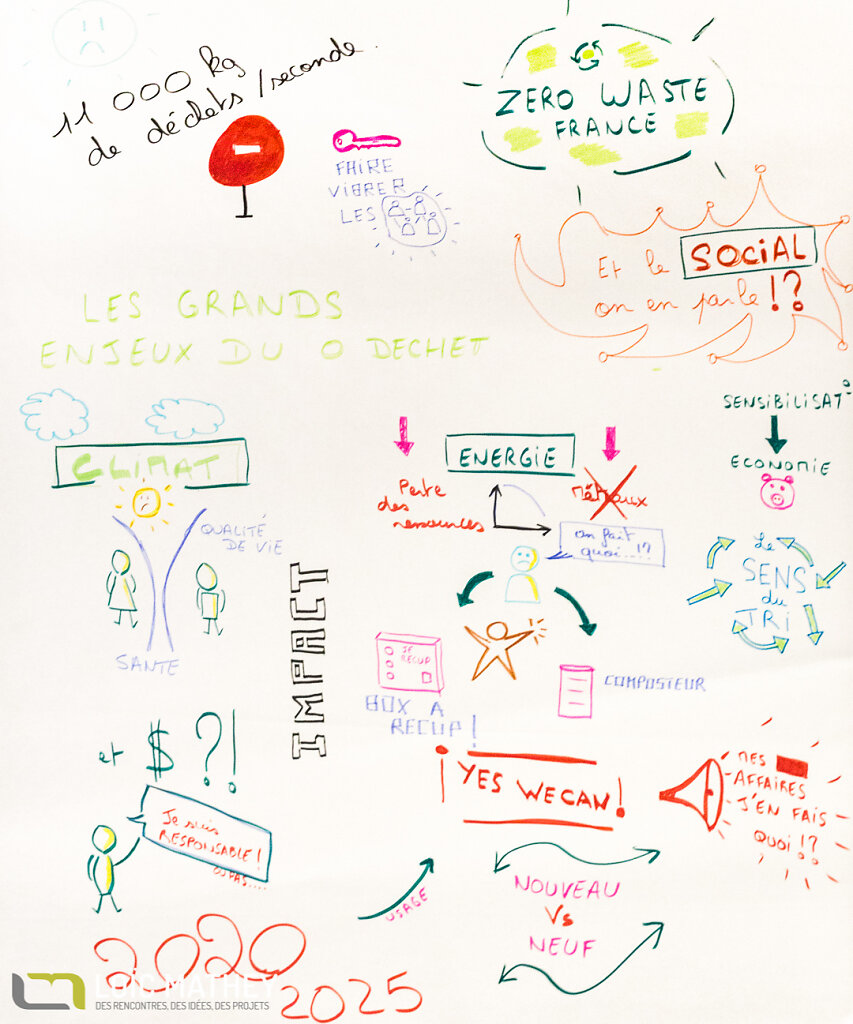 11 000 kg
de déchets / seconde.
ZERO WASTE
FRANCE
FAIRE
VIBRER
LES
Et le SOCIAL
on en parle !?
LES GRANDS
ENJEUX DU 0 DECHET
CLIMAT
QUALITÉ
DE VIE
SANTE
IMPACT
ENERGIE
Perte
des
ressources
Métaux
on fait
quoi...!?
JE
RECUP
BOX A
RECUP !
COMPOSTEUR
SENSIBILISAT°
ECONOMIE
Le
SENS
du
TRI
et $ ?!
Je suis
RESPONSABLE !
OU PAS....
¡YES WE CAN !
MES
AFFAIRES
J'EN FAIS
QUOI !?
USAGE
NOUVEAU
Vs
NEUF
2020
2025
LOÏC MATHEY
DES RENCONTRES, DES IDÉES, DES PROJETS